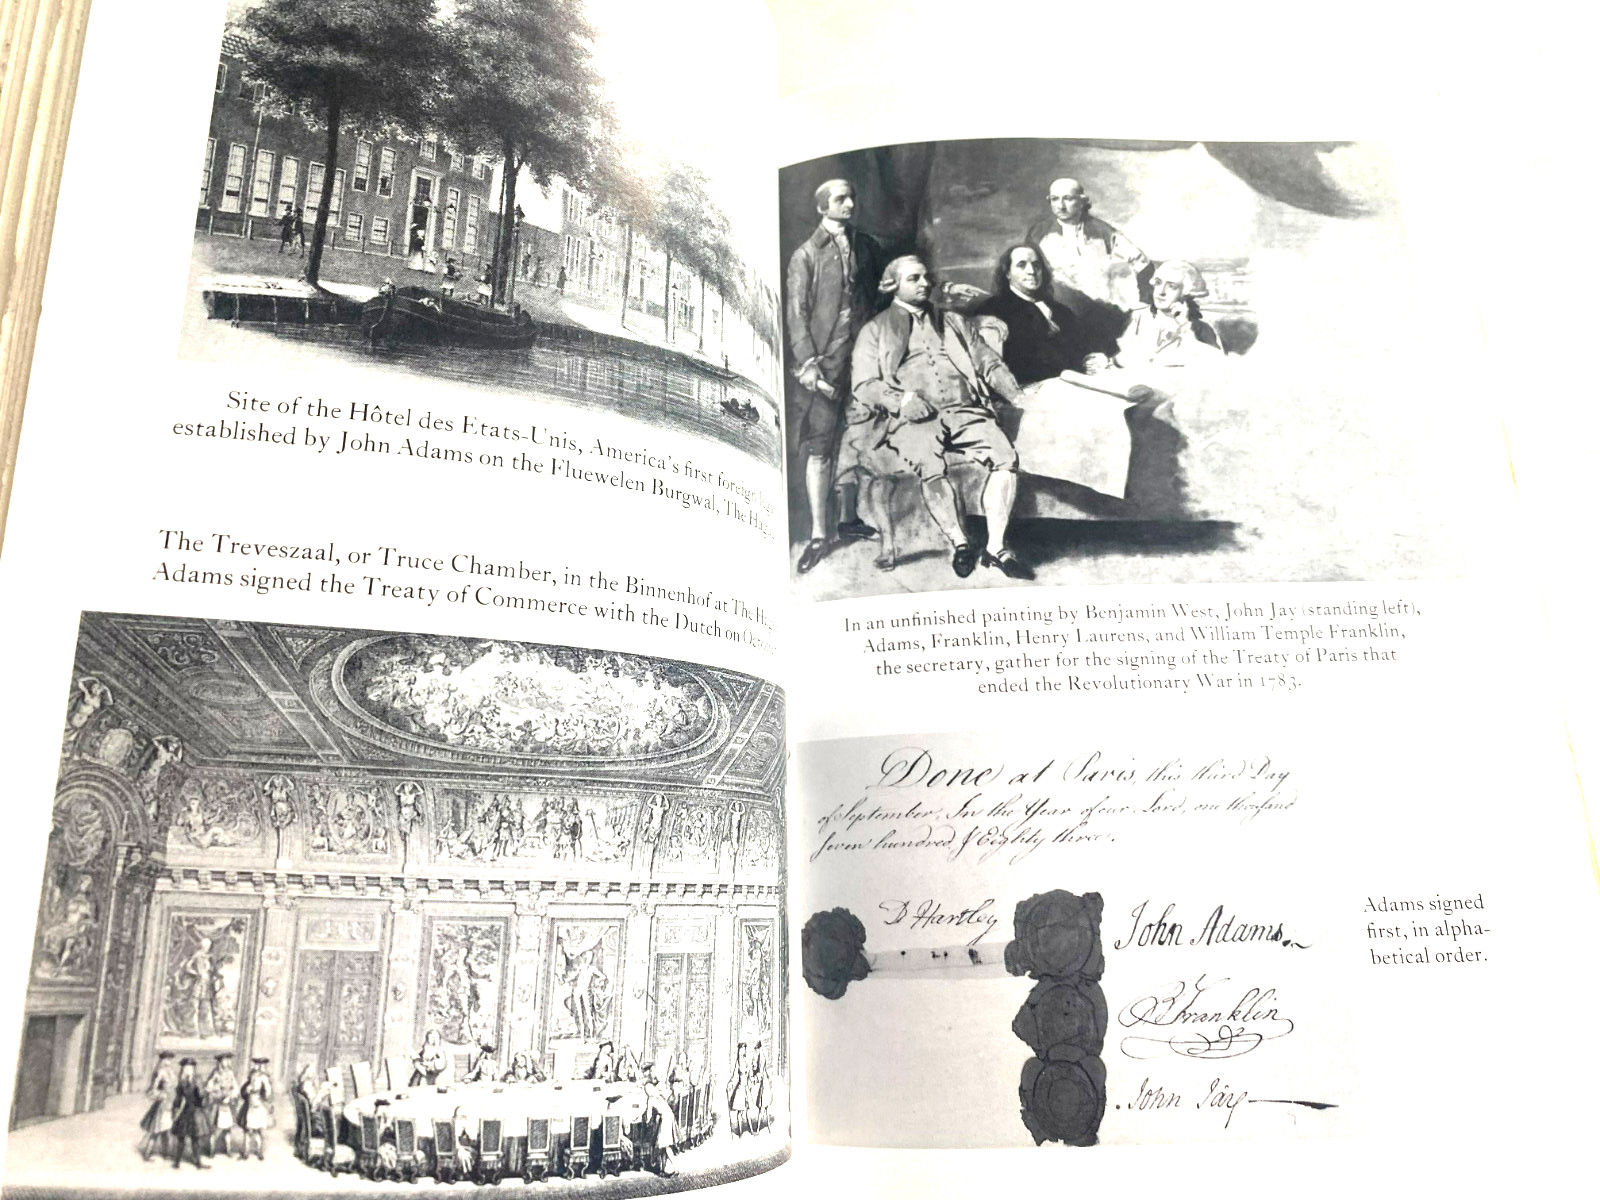 Site of the Hôtel des Etats-Unis, America's first foreign
established by John Adams on the Fluewelen Burgwal, The
The Treveszaal, or Truce Chamber, in the Binnenhof at The
Adams signed the Treaty of Commerce with the Dutch on
In an unfinished painting by Benjamin West, John Jay (standing left),
Adams, Franklin, Henry Laurens, and William Temple Franklin,
the secretary, gather for the signing of the Treaty of Paris that
ended the Revolutionary War in 1783.
Done at Paris, this third Day
of September, In the Year of our Lord, one thousand
seven hundred & Eighty three.
D Hartley
John Adams.
B Franklin
John Jay
Adams signed
first, in alpha-
betical order.